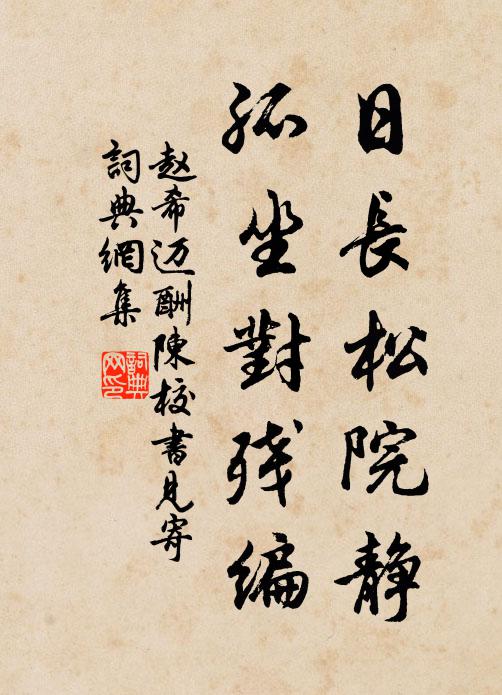 日長松院静
孤坐對残編
赵希迈酬陳校書見寄
詞典網集
詞典网印